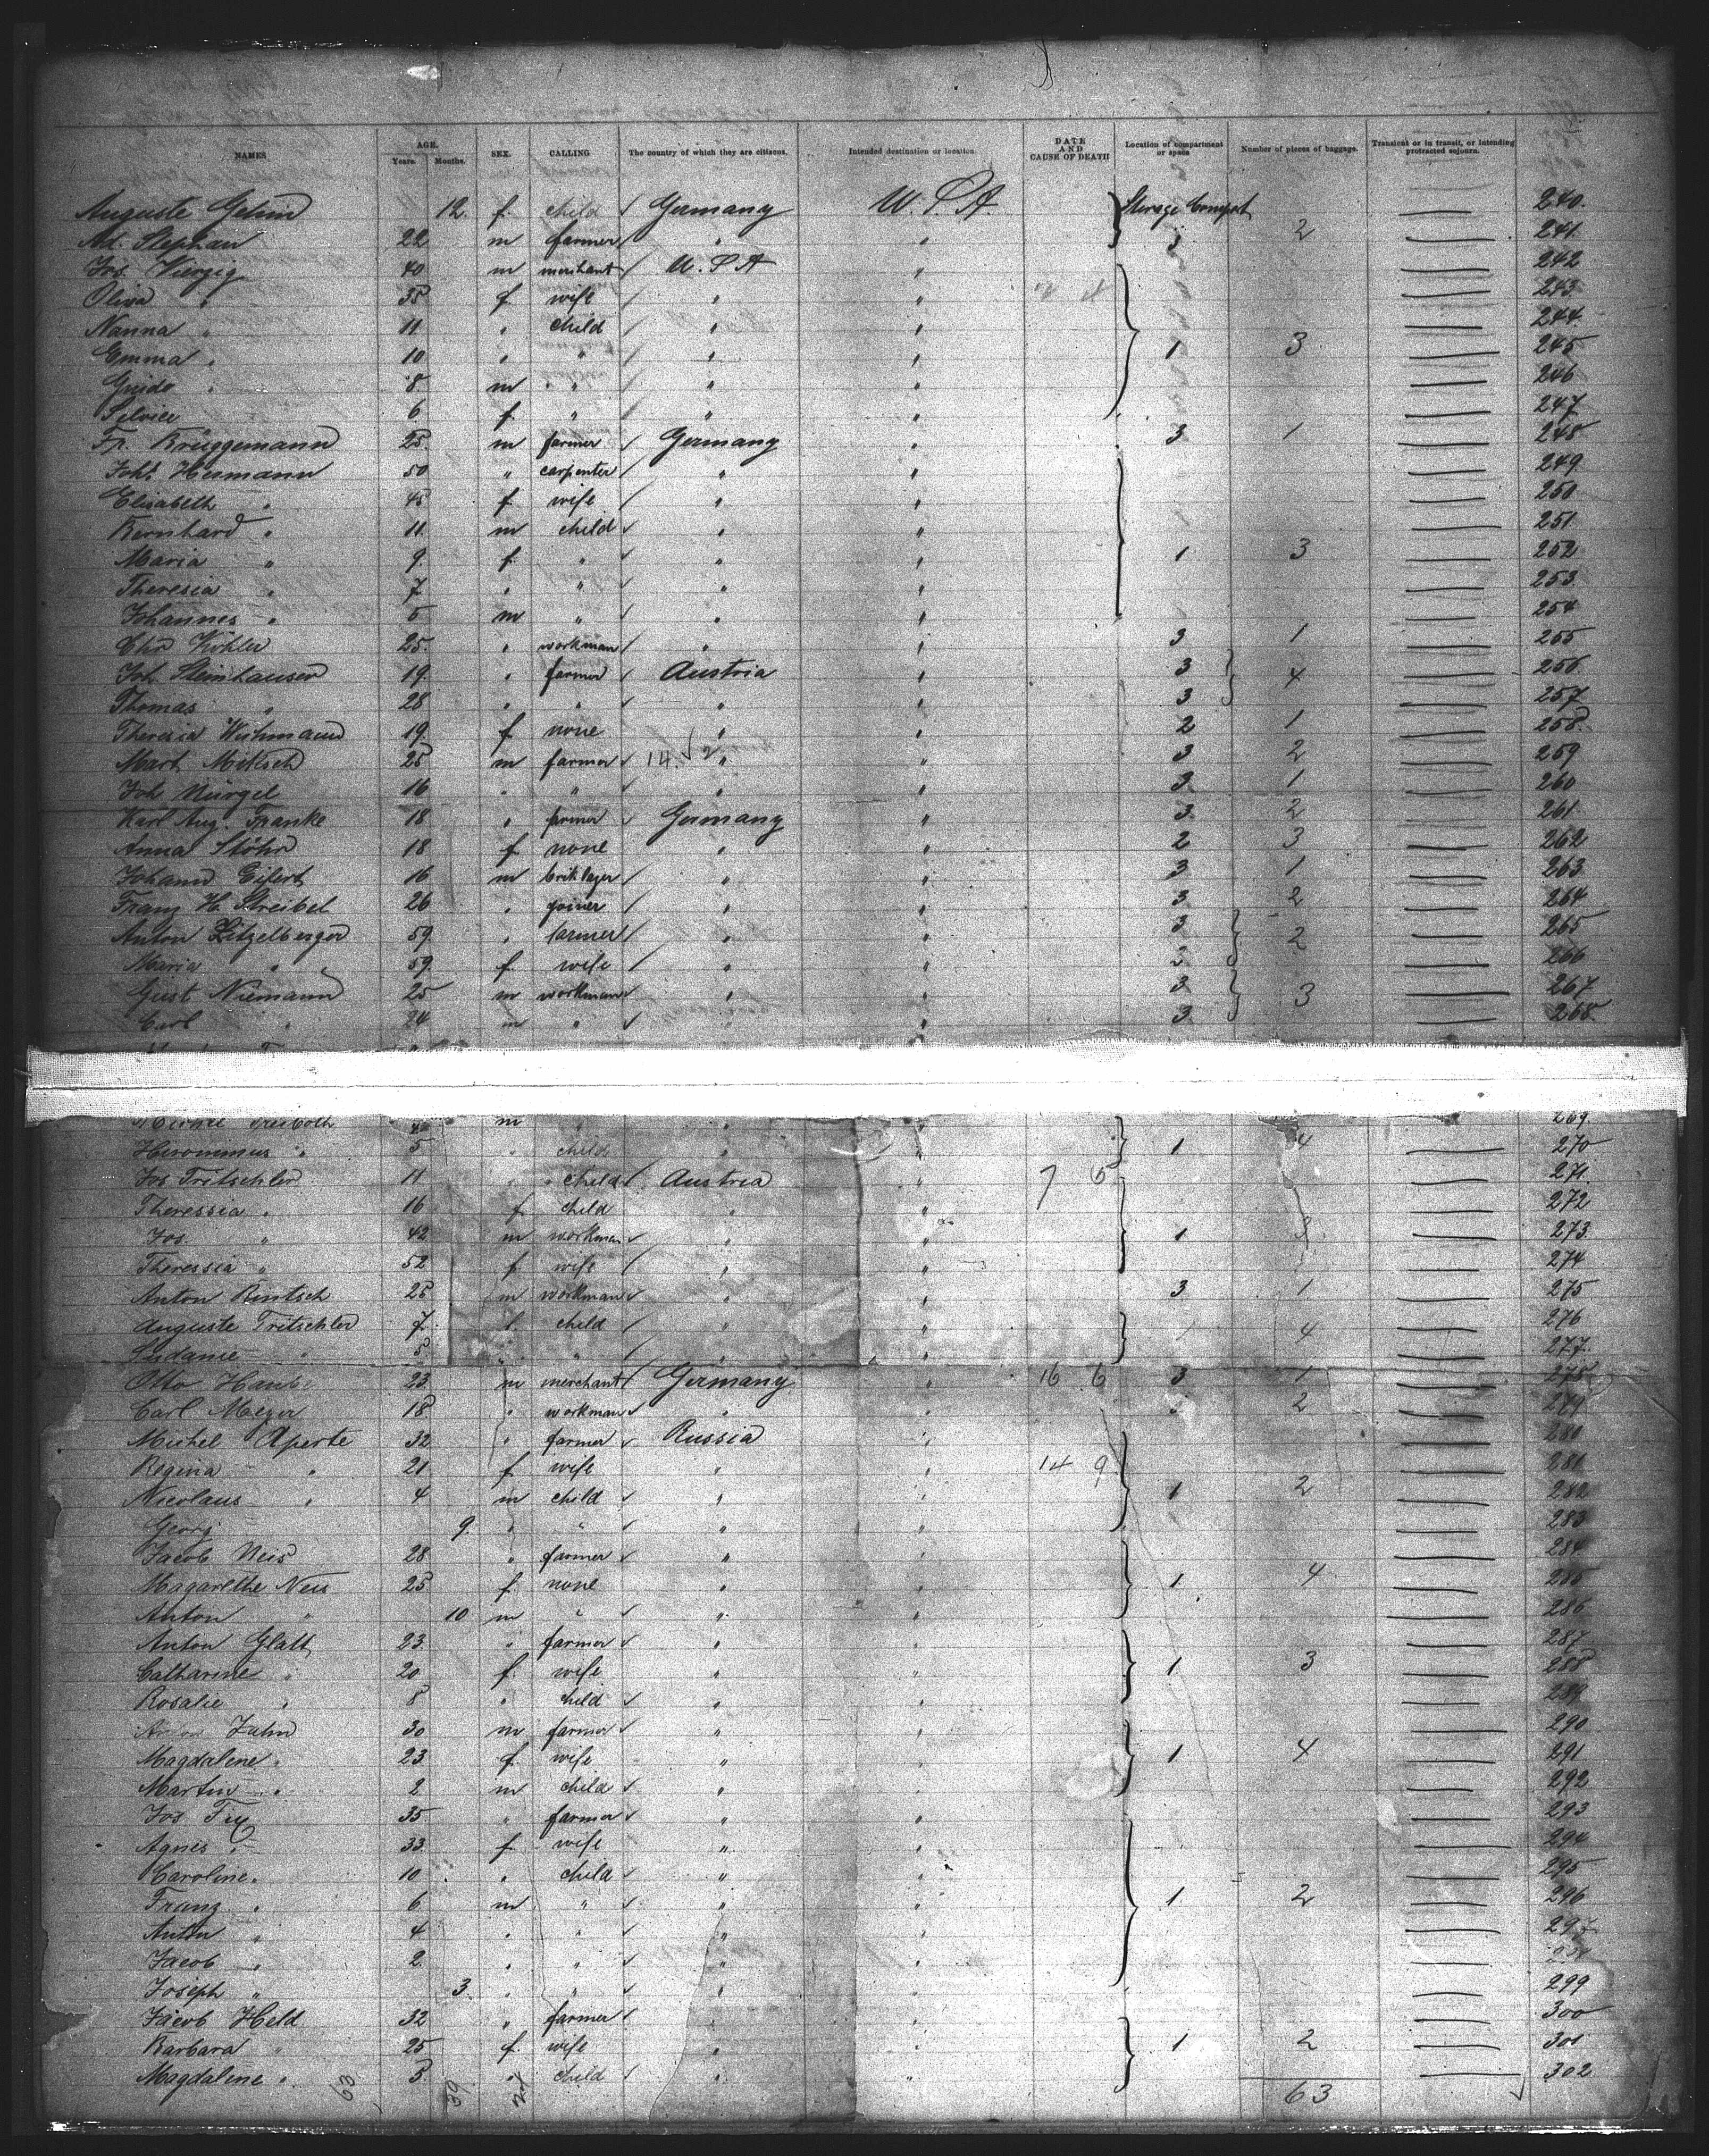 NAMES AGE. Years. Months. SEX. CALLING The country of which they are citizens. Intended destination or location. DATE AND CAUSE OF DEATH Location of compartment or space Number of pieces of baggage. Transient or in transit, or intending protracted sojourn.
Auguste 12. f. child Germany U.S.A. Sterage Compart 240.
Ad. Stephan 22 m farmer " " 3 2 241
Jos. Vierzig 40 m merchant U.S.A " 242
Oliva " 35 f wife " " 243
Nanna " 11 " child " " 244
Emma " 10 " " " " 1 3 245
Guido " 8 m " " " 246
6 f " " " 247
Fr. Brüggemann 25 m farmer Germany " 3 1 248
Joh. Hermann 50 " carpenter " " 249
Elisabeth " 45 f wife " " 250
Bernhard " 11 m child " " 251
Maria " 9 f " " " 1 3 252
Theresia " 7 " " " " 253
Johannes " 5 m " " " 254
Chr Köhler 25 " workman " " 3 1 255
Joh. Steinhauser 19 " farmer Austria " 3 4 256
Thomas " 28 " " " " 3 257
Theresia 19 f none " " 2 1 258
Mart Mitlsch 25 m farmer 14. " " 3 2 259
Joh Nürgel 16 " " " " 3 1 260
Karl Aug. Franke 18 " farmer Germany " 3 2 261
Anna Stöhr 18 f none " " 2 3 262
Johann Eifert 16 m briklayer " " 3 1 263
Franz H. Streibel 26 " joiner " " 3 2 264
Anton Litzelberger 59 " farmer " " 3 2 265
Maria " 59 f wife " " 2 266
Gust Niemann 25 m workman " " 3 3 267
Carl " 24 m " " " 3 268
m " " 269
Heronimus " 5 " child " " 1 4 270
Jos Tritschler 11 " child Austria " 7 5 271
Theressia " 16 f child " " 272
Jos. " 42 m workman " " 1 3 273
Theressia " 52 f wife " " 274
Anton Rintsch 25 m workman " " 3 1 275
Auguste Tritschler 7 f child " " 1 4 276
" 5 " " " " 277
Otto 23 m merchant Germany " 16 6 3 1 278
Carl Meyer 18 " workman " " 3 2 279
Michel Aperte 32 " farmer Russia " 280
Regina " 21 f wife " " 14 9 281
Nicolaus " 4 m child " " 1 2 282
Georg 9 " " " " 283
Jacob Neis 28 " farmer " " 284
Magarethe Neis 25 f none " " 1 4 285
Anton " 10 m " " " 286
Anton Glatt 23 " farmer " " 287
Catharine " 20 f wife " " 1 3 288
Rosalie " 8 " child " " 289
Jahn 30 m farmer " " 290
Magdalene " 23 f wife " " 1 4 291
Martin " 2 m child " " 292
Jos Fix 35 " farmer " " 293
Agnes " 33 f wife " " 294
Caroline " 10 " child " " 295
Franz " 6 m " " " 1 2 296
Anton " 4 " " " " 297
Jacob " 2 " " " " 298
Joseph " 3 " " " " 299
Jacob Held 32 " farmer " " 300
Barbara " 25 f wife " " 1 2 301
Magdalene " 3 " child " " 302
63 39 24 63